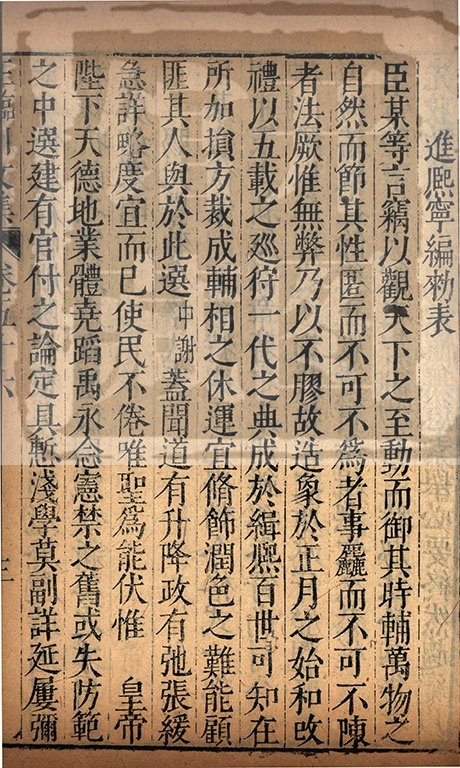 進熙寧編勑表
臣某等言竊以觀天下之至動而御其時輔萬物之
自然而節其性匿而不可不為者事麤而不可不陳
者法厥惟無弊乃以不膠故造象於正月之始和改
禮以五載之廵狩一代之典成於緝熙百世可知在
所加損方裁成輔相之休運宜脩飾潤色之難能顧
匪其人與於此選中謝蓋聞道有升降政有弛張緩
急詳略度宜而已使民不倦唯聖為能伏惟 皇帝
陛下天德地業體堯蹈禹永念憲禁之舊或失防範
之中選建有官付之論定具慙淺學莫副詳延屢彌
王臨川文集 卷五十六 三